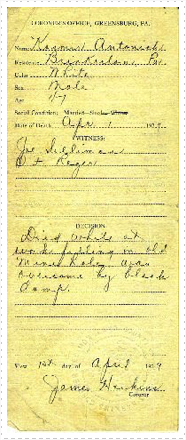 CORONER'S OFFICE, GREENSBURG, PA.
Name Kosmir Antonish
Residence Pa.
Color White
Sex Male
Age 57
Social Condition: Married
Date of Death Apr 1 1929
WITNESS:
Joe
O. L.
DECISION
Died while at
work falling in old
Mine hole, was
overcome by black
damp.
View 1st day of April 1929
James
Coroner